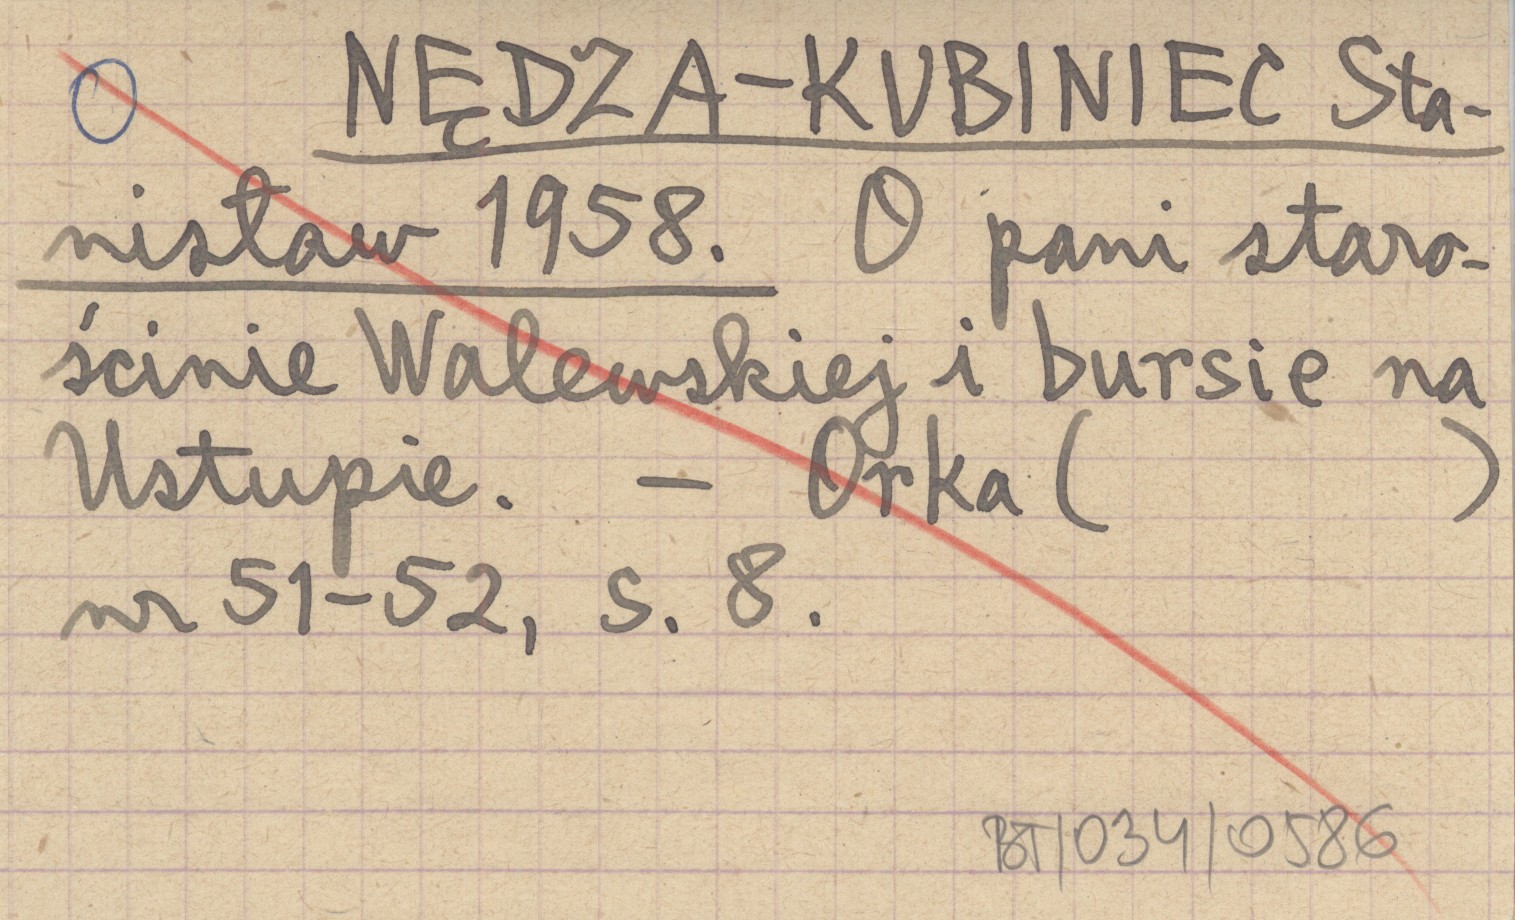 NĘDZA-KUBINIEC Sta-
nisław 1958. O pani staro-
ścinie Walewskiej i bursie na
Ustupie. - Orka ( )
nr 51-52, s. 8.
BT/034/0586